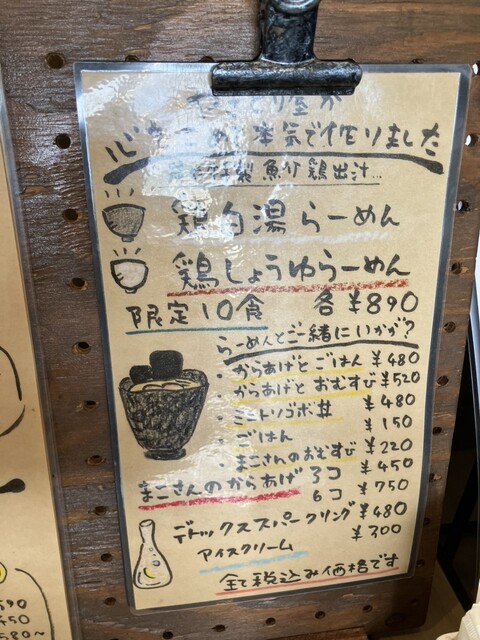 屋が
心をこめて本気で作りました
製 魚介鶏出汁...
鶏白湯らーめん
鶏しょうゆらーめん
限定10食 各¥890
らーめんとご一緒にいかが?
・からあげとごはん ¥480
・からあげとおむすび ¥520
・ミニトリゴボ丼 ¥480
・ごはん ¥150
・まこさんのおむすび ¥220
まこさんのからあげ 3コ ¥450
6コ ¥750
デトックススパークリング ¥480
アイスクリーム ¥300
全て税込み価格です
590
550
580~